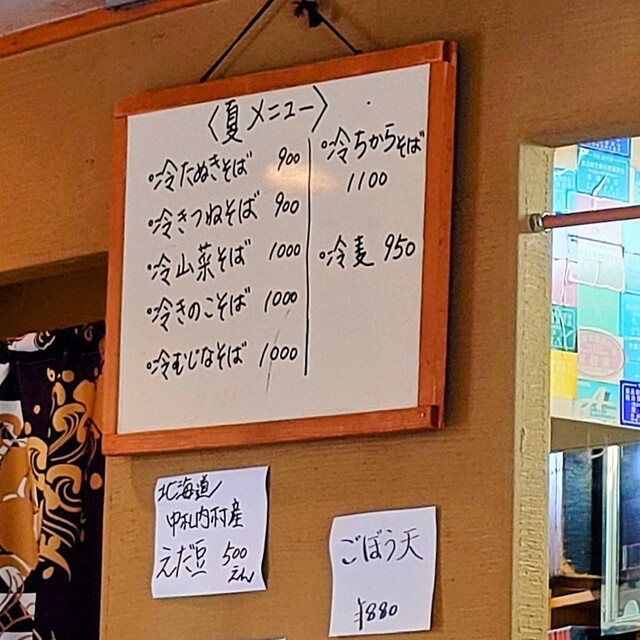 〈夏メニュー〉
・冷たぬきそば 900
・冷きつねそば 900
・冷山菜そば 1000
・冷きのこそば 1000
・冷むじなそば 1000
・冷ちからそば
1100
・冷麦 950
北海道
中札内村産
えだ豆 500
えん
ごぼう天
¥880